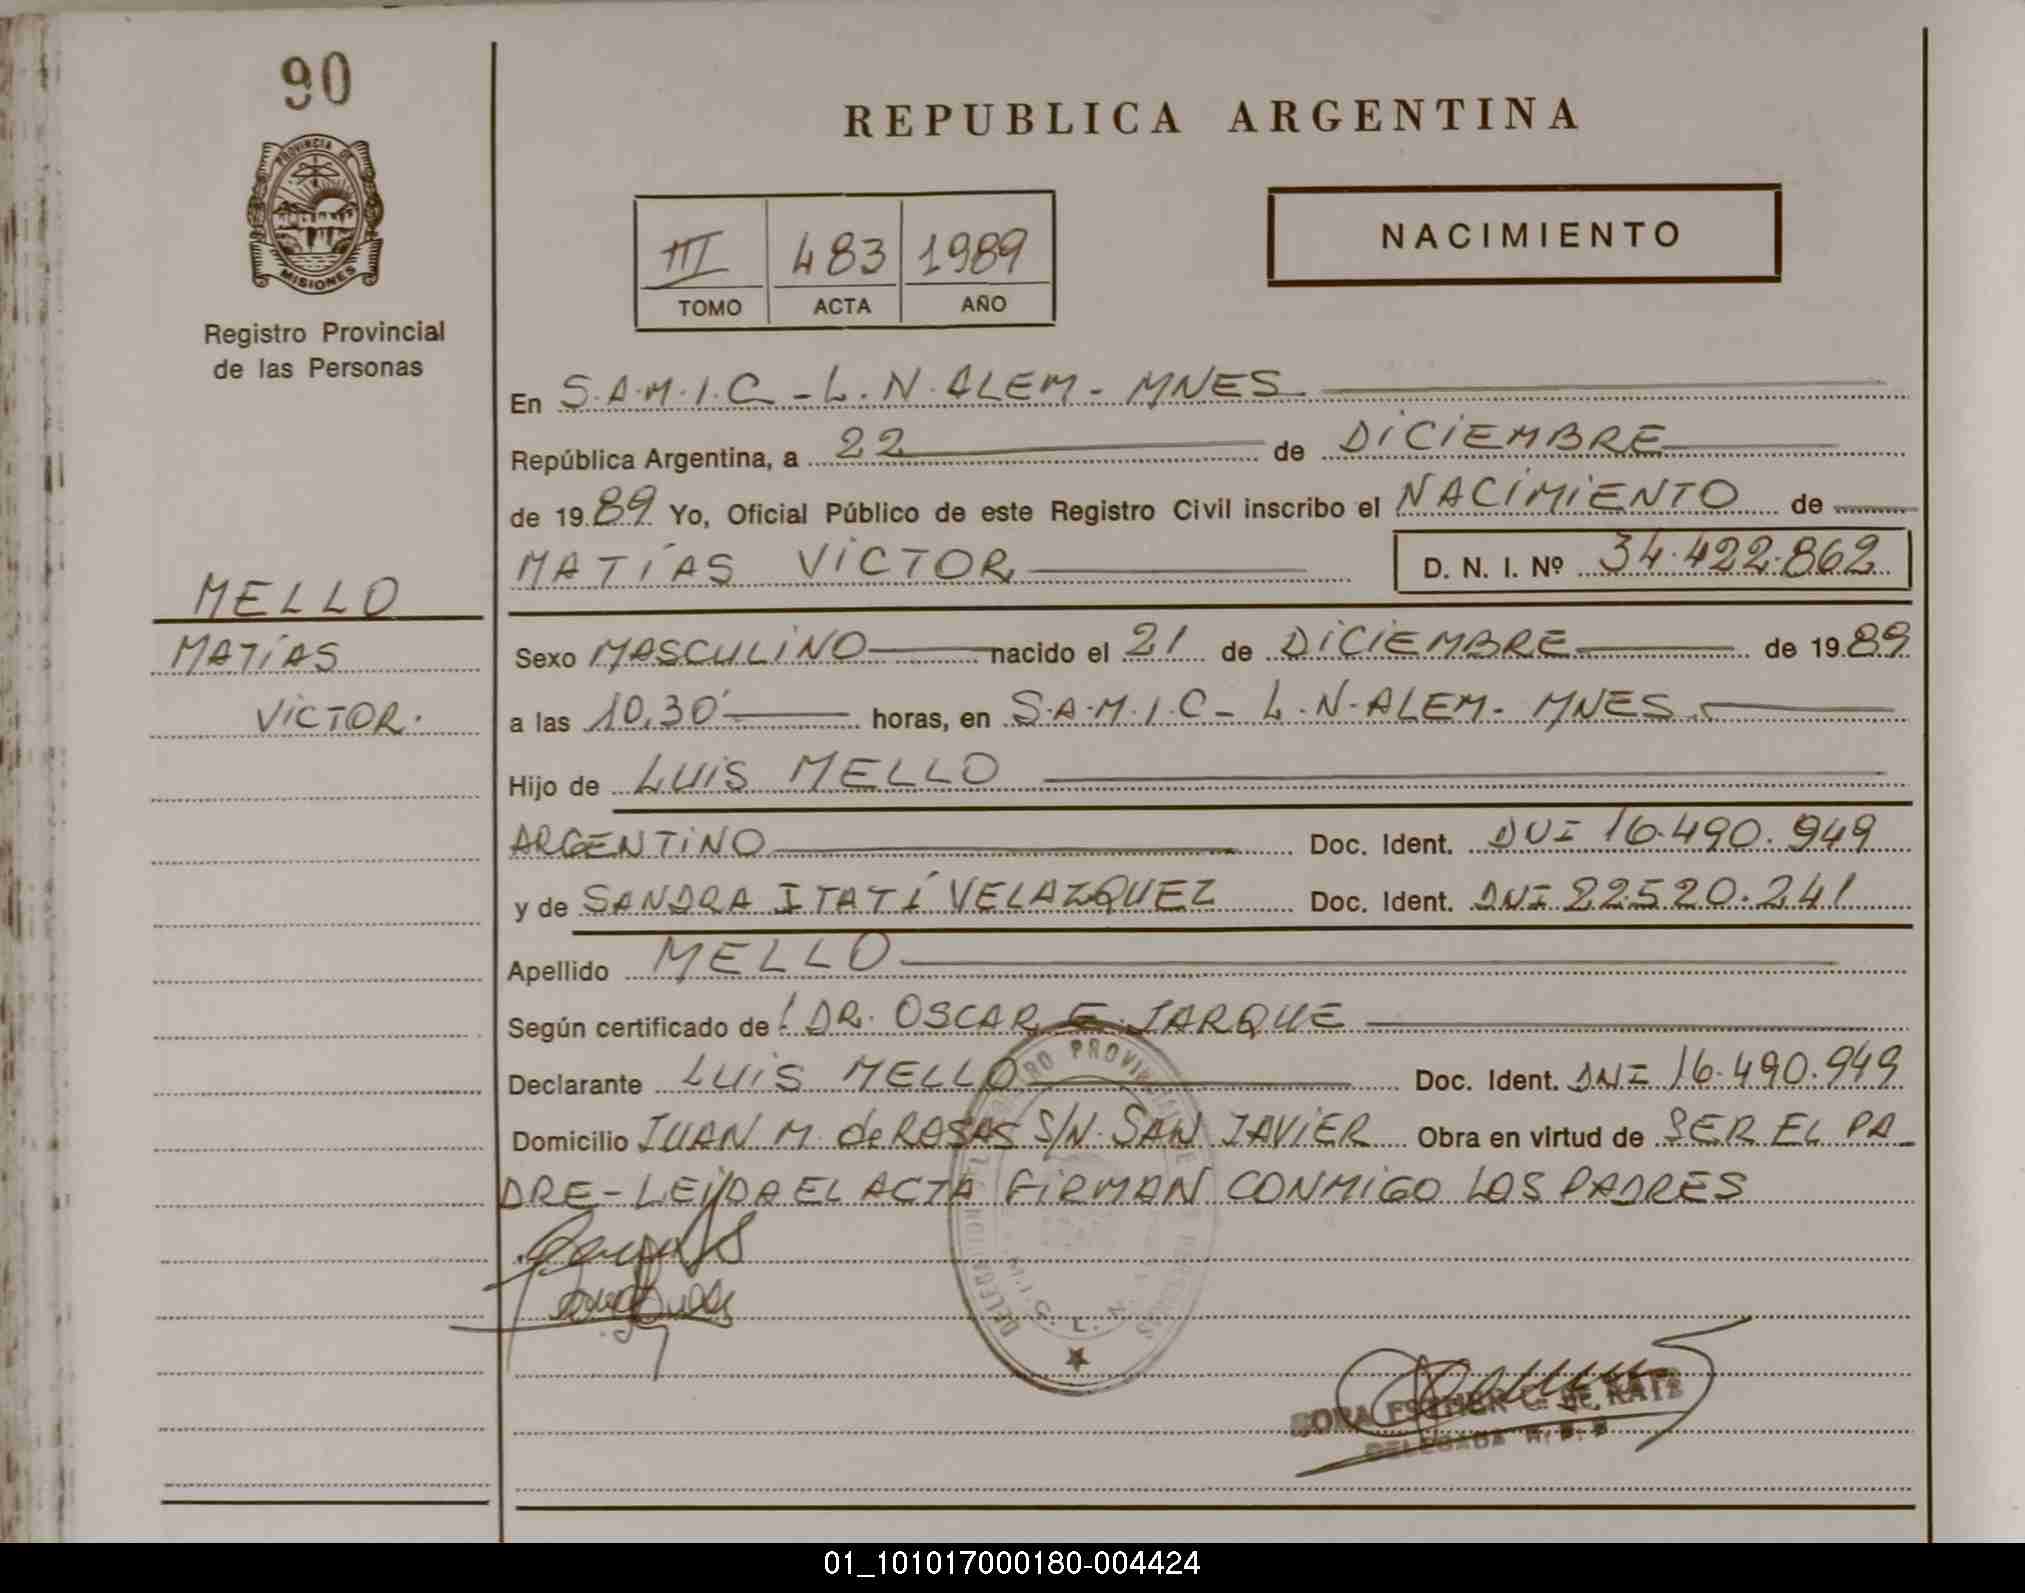 90
REPUBLICA ARGENTINA
PROVINCIA DE
MISIONES
Registro Provincial
de las Personas
III 483 1989
TOMO ACTA AÑO
NACIMIENTO
En S.A.M.I.C - L.N. ALEM - MNES
República Argentina, a 22 de DICIEMBRE
de 1989 Yo, Oficial Público de este Registro Civil inscribo el NACIMIENTO de
MATÍAS VICTOR D. N. I. Nº 34.422.862
MELLO
MATÍAS
VICTOR.
Sexo MASCULINO nacido el 21 de DICIEMBRE de 1989
a las 10,30 horas, en S.A.M.I.C - L.N. ALEM - MNES
Hijo de LUIS MELLO
ARGENTINO Doc. Ident. DNI 16.490.949
y de SANDRA ITATÍ VELAZQUEZ Doc. Ident. DNI 22.520.241
Apellido MELLO
Según certificado de: DR. OSCAR E. JARQUE
Declarante LUIS MELLO Doc. Ident. DNI 16.490.949
Domicilio JUAN M. de ROSAS S/N. SAN JAVIER Obra en virtud de SER EL PA-
DRE - LEIDA EL ACTA FIRMAN CONMIGO LOS PADRES
DELEGADA
01_101017000180-004424